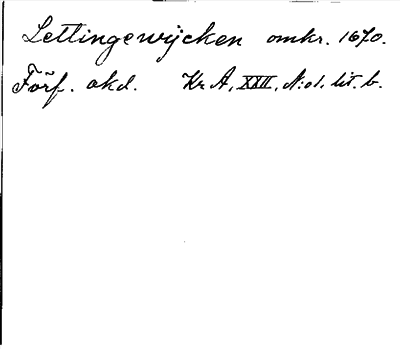 Lettingewijcken omkr. 1670.
Förf. okd. Kr. A, XXII, N:o1. lit. b.